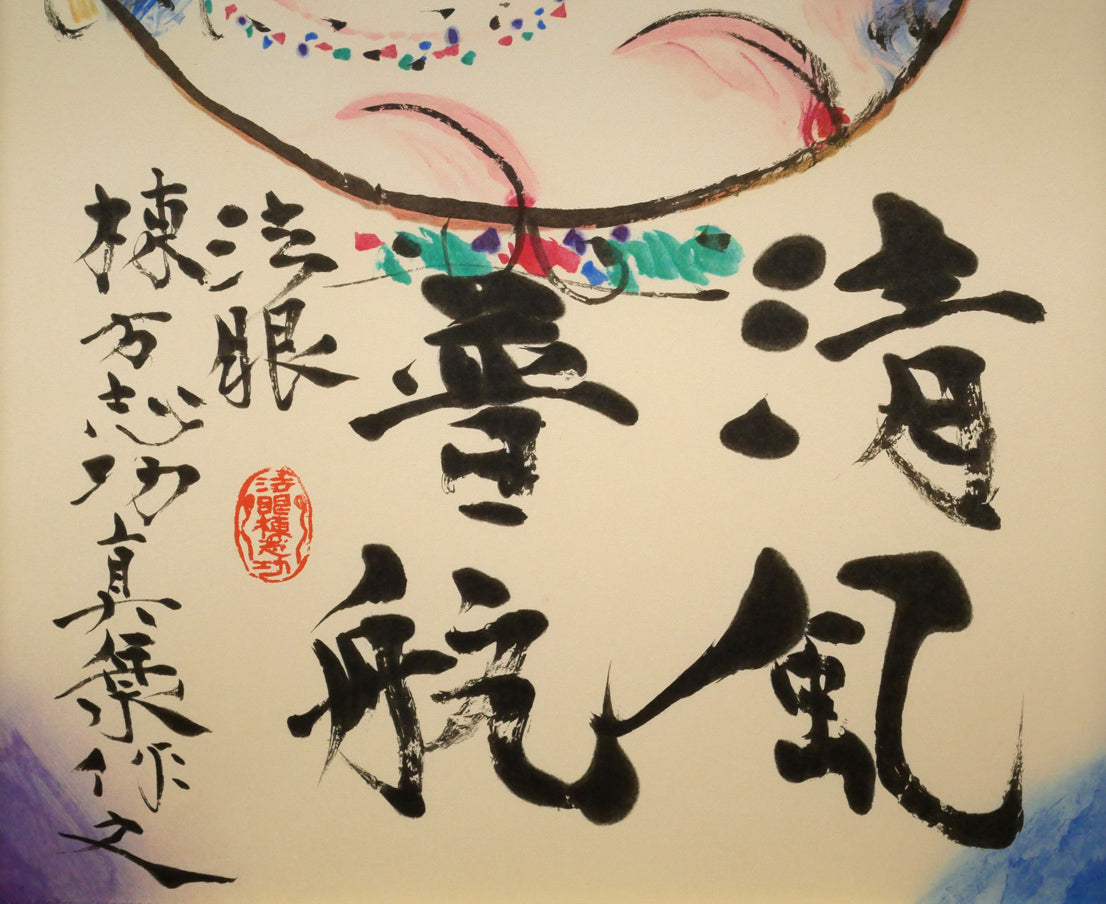 清風
普航
法眼
棟方志功真筆作之
法眼棟志功